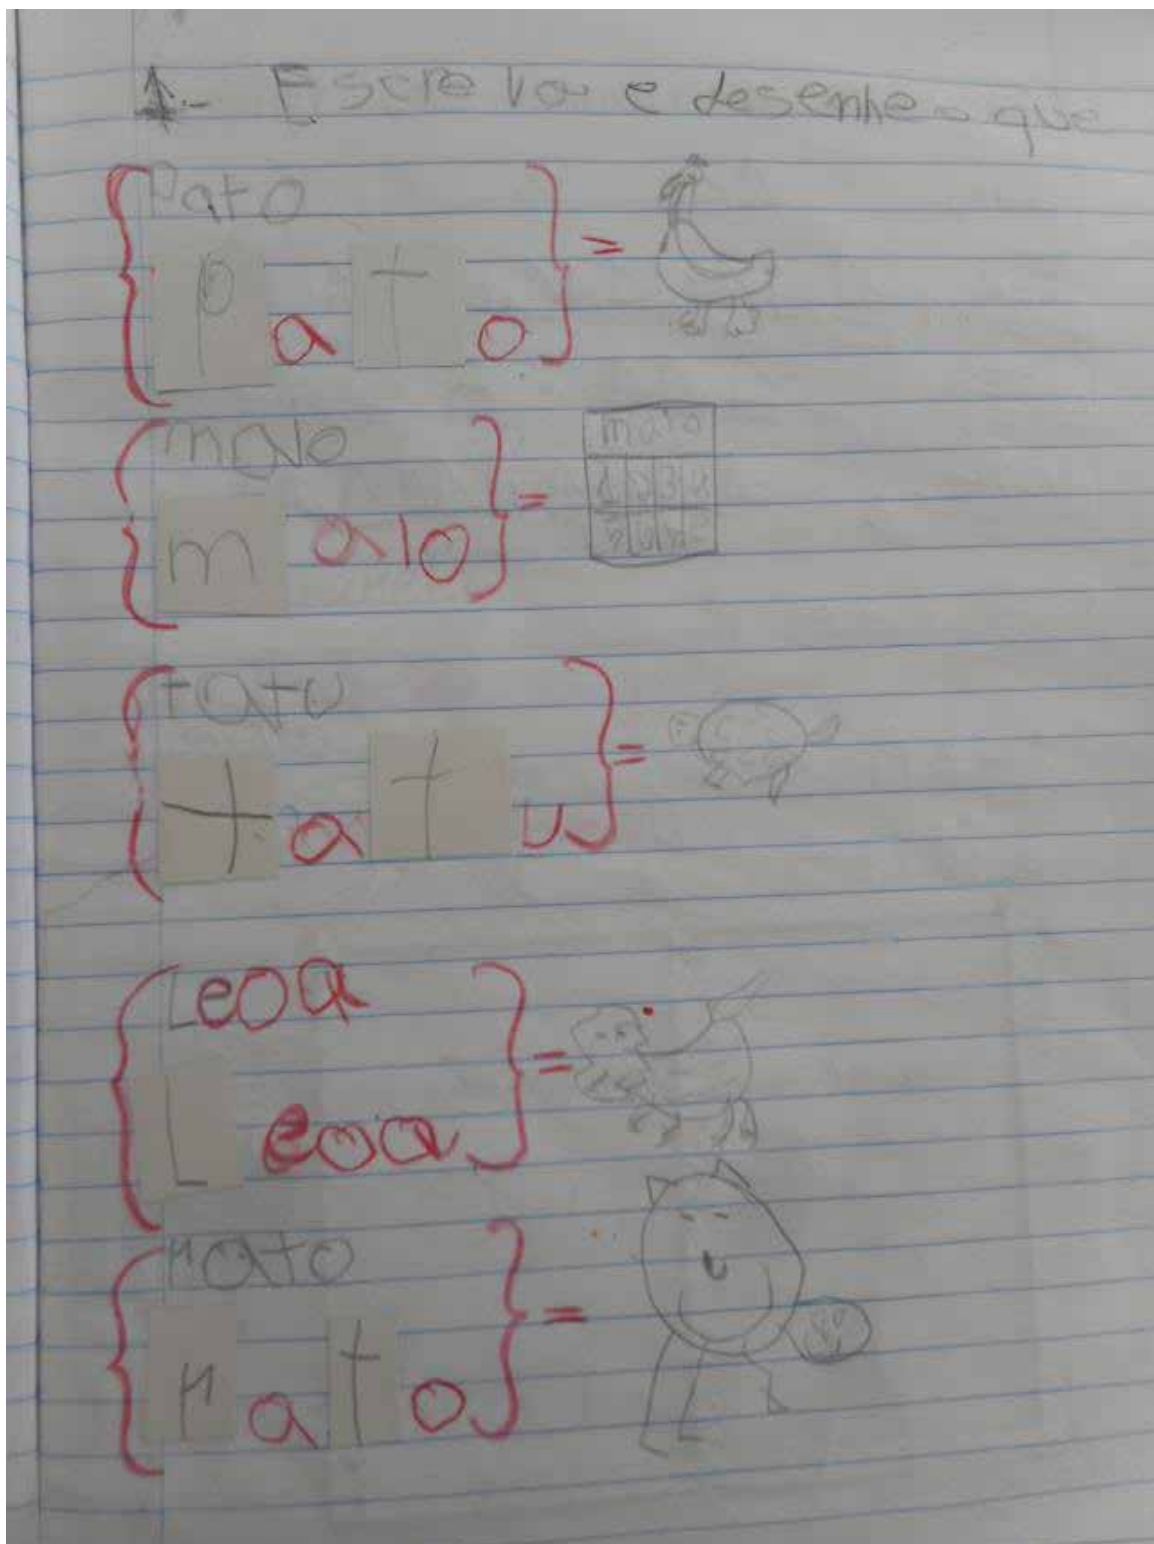 1- Escreva e desenhe o que
Pato
p a t o
maio
m aio
maio
1 2 3 4
tatu
t a t u
Leoa
L eoa
rato
r a t o